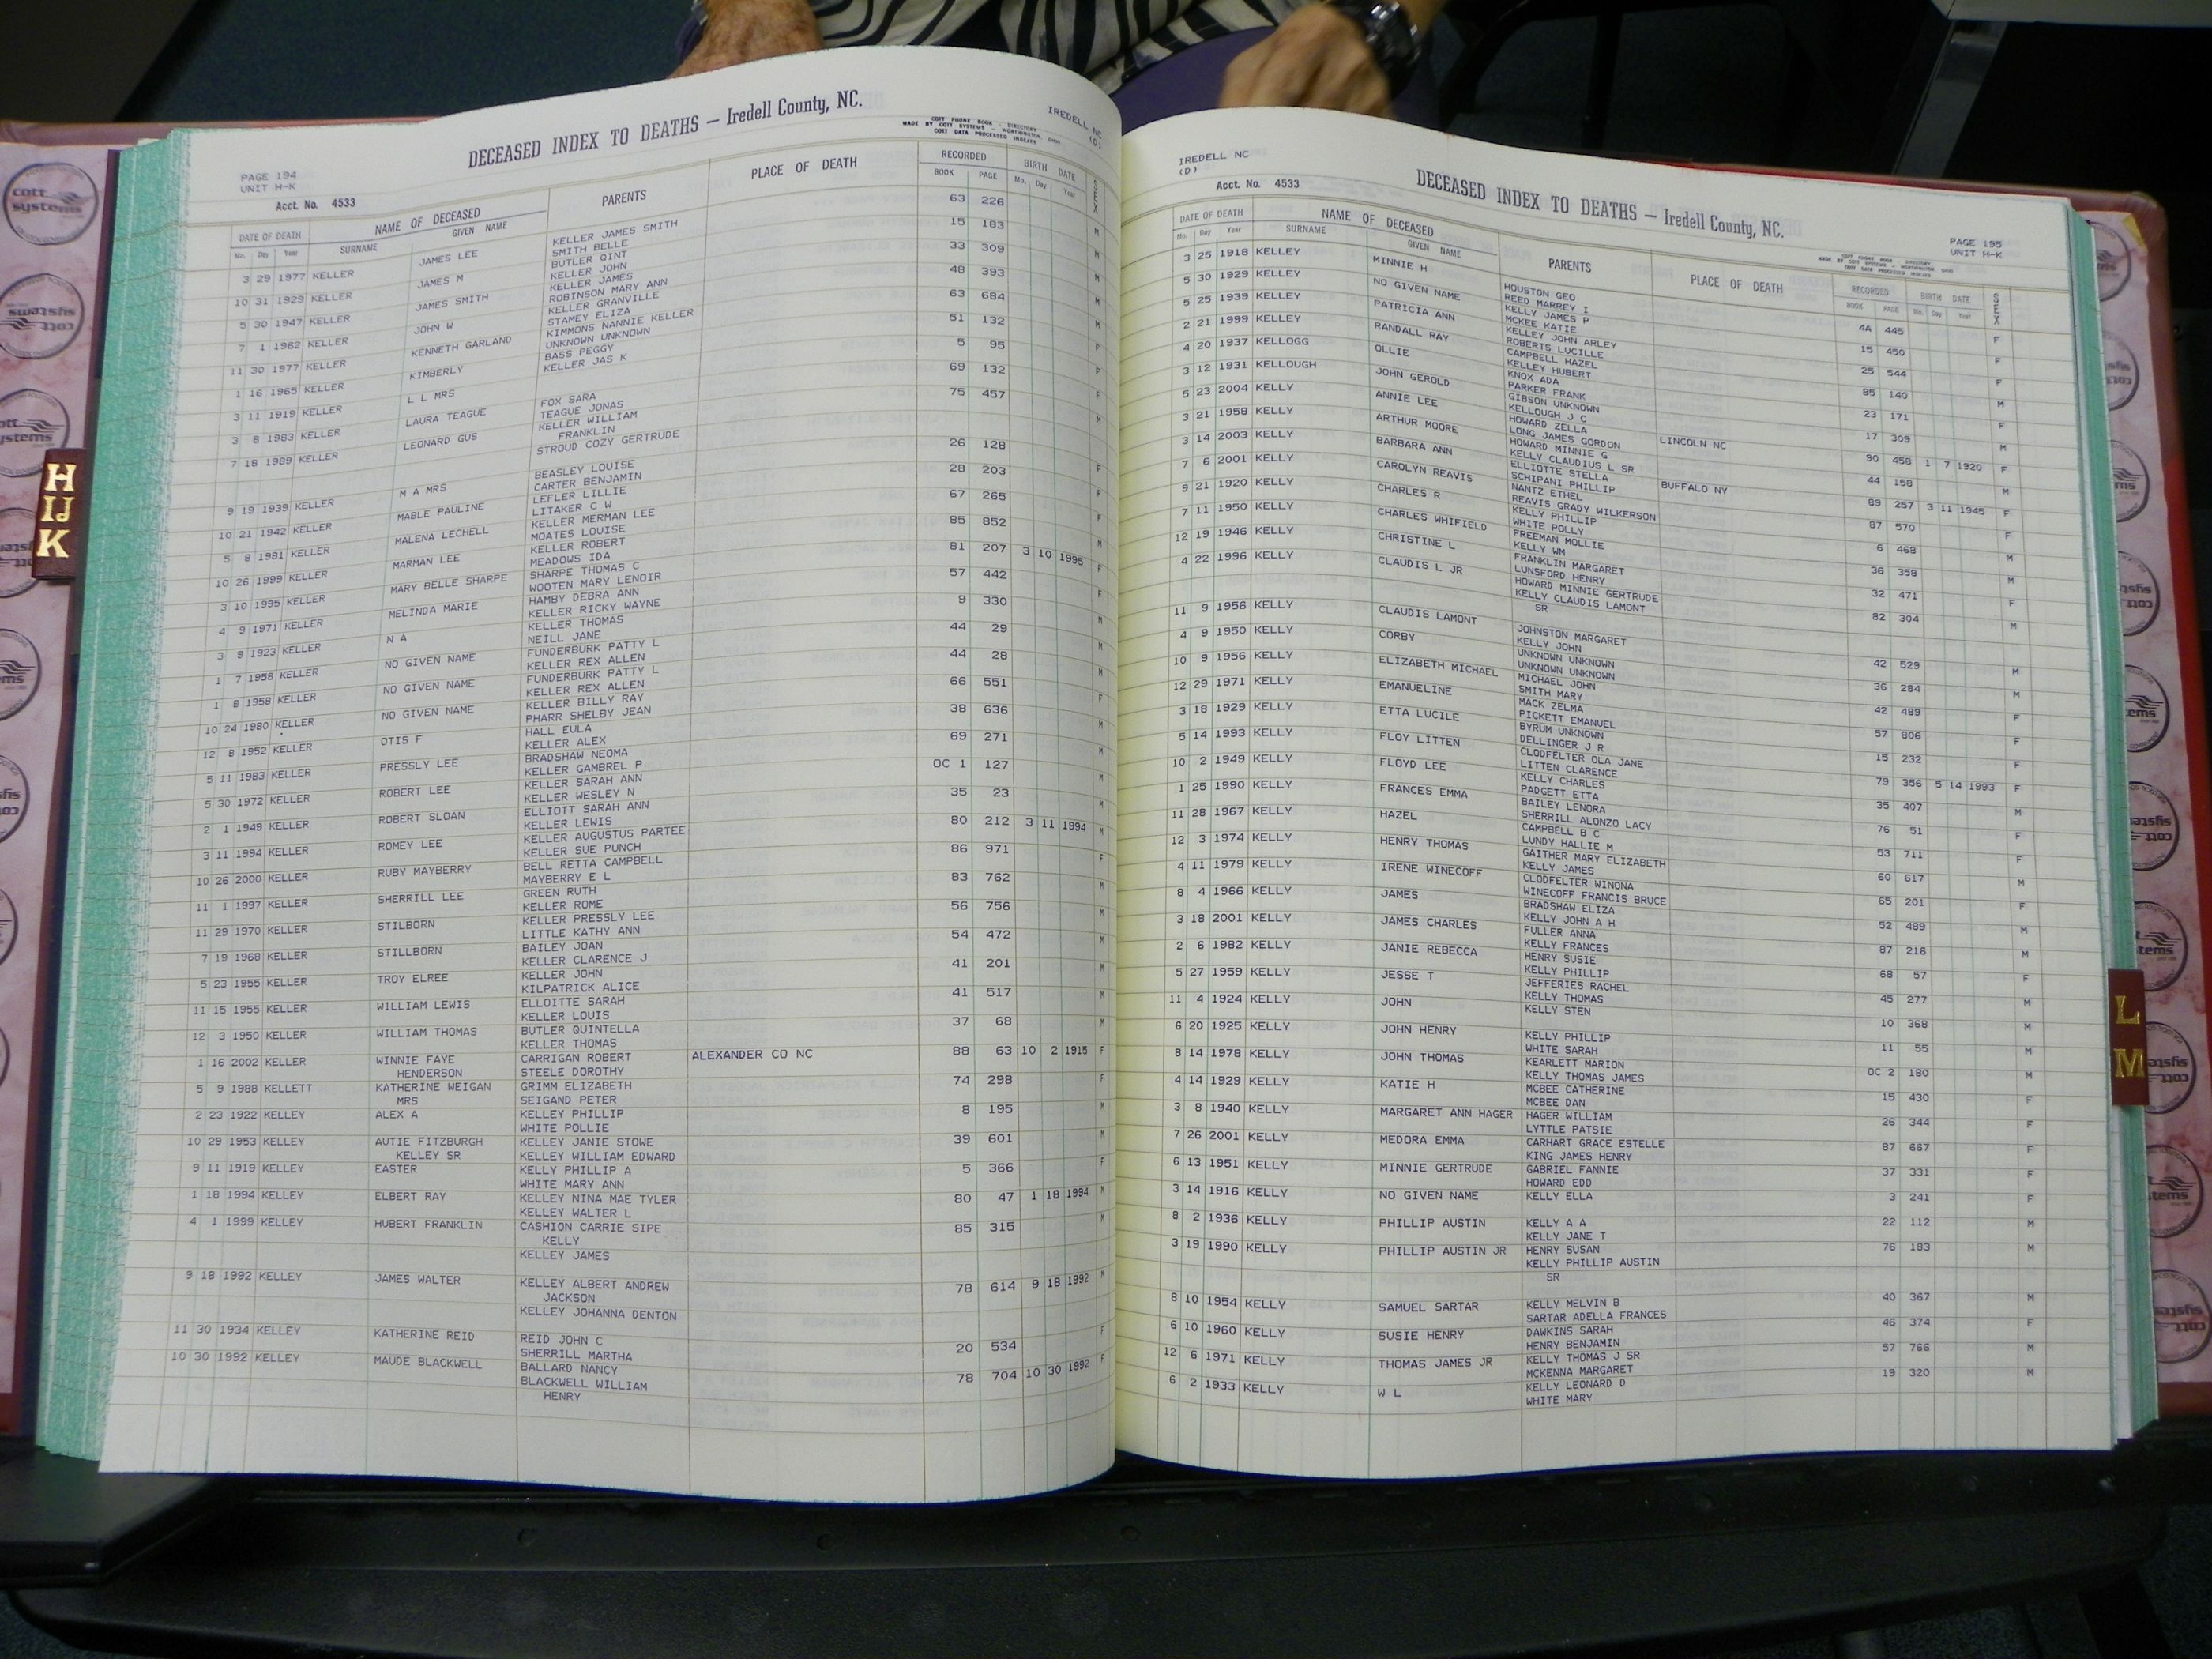 DECEASED INDEX TO DEATHS — Iredell County, NC.
IREDELL NC
(D)
COTT PHONE BOOK - DIRECTORY
MADE BY COTT SYSTEMS - WORTHINGTON OHIO
COTT DATA PROCESSED INDEXES
PAGE 194
UNIT H-K
Acct. No. 4533
DATE OF DEATH NAME OF DECEASED PARENTS PLACE OF DEATH RECORDED BIRTH DATE SEX
Mo. Day Year SURNAME GIVEN NAME BOOK PAGE Mo. Day Year
3 29 1977 KELLER JAMES LEE KELLER JAMES SMITH 63 226 M
SMITH BELLE
10 31 1929 KELLER JAMES M BUTLER QINT 15 183 M
KELLER JOHN
5 30 1947 KELLER JAMES SMITH KELLER JAMES 33 309 M
ROBINSON MARY ANN
7 1 1962 KELLER JOHN W KELLER GRANVILLE 48 393 M
STAMEY ELIZA
11 30 1977 KELLER KENNETH GARLAND KIMMONS NANNIE KELLER 63 684 M
UNKNOWN UNKNOWN
1 16 1965 KELLER KIMBERLY BASS PEGGY 51 132 F
KELLER JAS K
3 11 1919 KELLER L L MRS 5 95 F
3 8 1983 KELLER LAURA TEAGUE FOX SARA 69 132 F
TEAGUE JONAS
7 18 1989 KELLER LEONARD GUS KELLER WILLIAM 75 457 M
FRANKLIN
STROUD COZY GERTRUDE
9 19 1939 KELLER M A MRS BEASLEY LOUISE 26 128 F
CARTER BENJAMIN
10 21 1942 KELLER MABLE PAULINE LEFLER LILLIE 28 203 F
LITAKER C W
5 8 1981 KELLER MALENA LECHELL KELLER MERMAN LEE 67 265 F
MOATES LOUISE
10 26 1999 KELLER MARMAN LEE KELLER ROBERT 85 852 M
MEADOWS IDA
3 10 1995 KELLER MARY BELLE SHARPE SHARPE THOMAS C 81 207 3 10 1995 F
WOOTEN MARY LENOIR
4 9 1971 KELLER MELINDA MARIE HAMBY DEBRA ANN 57 442 F
KELLER RICKY WAYNE
3 9 1923 KELLER N A KELLER THOMAS 9 330 M
NEILL JANE
1 7 1958 KELLER NO GIVEN NAME FUNDERBURK PATTY L 44 29 M
KELLER REX ALLEN
1 8 1958 KELLER NO GIVEN NAME FUNDERBURK PATTY L 44 28 M
KELLER REX ALLEN
10 24 1980 KELLER NO GIVEN NAME KELLER BILLY RAY 66 551 F
PHARR SHELBY JEAN
12 8 1952 KELLER OTIS F HALL EULA 38 636 M
KELLER ALEX
5 11 1983 KELLER PRESSLY LEE BRADSHAW NEOMA 69 271 M
KELLER GAMBREL P
5 30 1972 KELLER ROBERT LEE KELLER SARAH ANN OC 1 127 M
KELLER WESLEY N
2 1 1949 KELLER ROBERT SLOAN ELLIOTT SARAH ANN 35 23 M
KELLER LEWIS
3 11 1994 KELLER ROMEY LEE KELLER AUGUSTUS PARTEE 80 212 3 11 1994 M
KELLER SUE PUNCH
10 26 2000 KELLER RUBY MAYBERRY BELL RETTA CAMPBELL 86 971 F
MAYBERRY E L
11 1 1997 KELLER SHERRILL LEE GREEN RUTH 83 762 M
KELLER ROME
11 29 1970 KELLER STILBORN KELLER PRESSLY LEE 56 756 M
LITTLE KATHY ANN
7 19 1968 KELLER STILLBORN BAILEY JOAN 54 472 M
KELLER CLARENCE J
5 23 1955 KELLER TROY ELREE KELLER JOHN 41 201 M
KILPATRICK ALICE
11 15 1955 KELLER WILLIAM LEWIS ELLOITTE SARAH 41 517 M
KELLER LOUIS
12 3 1950 KELLER WILLIAM THOMAS BUTLER QUINTELLA 37 68 M
KELLER THOMAS
1 16 2002 KELLER WINNIE FAYE CARRIGAN ROBERT ALEXANDER CO NC 88 63 10 2 1915 F
HENDERSON STEELE DOROTHY
5 9 1988 KELLETT KATHERINE WEIGAN GRIMM ELIZABETH 74 298 F
MRS SEIGAND PETER
2 23 1922 KELLEY ALEX A KELLEY PHILLIP 8 195 M
WHITE POLLIE
10 29 1953 KELLEY AUTIE FITZBURGH KELLEY JANIE STOWE 39 601 M
KELLEY SR KELLEY WILLIAM EDWARD
9 11 1919 KELLEY EASTER KELLY PHILLIP A 5 366 F
WHITE MARY ANN
1 18 1994 KELLEY ELBERT RAY KELLEY NINA MAE TYLER 80 47 1 18 1994 M
KELLEY WALTER L
4 1 1999 KELLEY HUBERT FRANKLIN CASHION CARRIE SIPE 85 315 M
KELLY
KELLEY JAMES
9 18 1992 KELLEY JAMES WALTER KELLEY ALBERT ANDREW 78 614 9 18 1992 M
JACKSON
KELLEY JOHANNA DENTON
11 30 1934 KELLEY KATHERINE REID REID JOHN C 20 534 F
SHERRILL MARTHA
10 30 1992 KELLEY MAUDE BLACKWELL BALLARD NANCY 78 704 10 30 1992 F
BLACKWELL WILLIAM
HENRY
IREDELL NC
(D)
Acct. No. 4533
DECEASED INDEX TO DEATHS — Iredell County, NC.
PAGE 195
UNIT H-K
COTT PHONE BOOK - DIRECTORY
MADE BY COTT SYSTEMS - WORTHINGTON OHIO
COTT DATA PROCESSED INDEXES
DATE OF DEATH NAME OF DECEASED PARENTS PLACE OF DEATH RECORDED BIRTH DATE SEX
Mo. Day Year SURNAME GIVEN NAME BOOK PAGE Mo. Day Year
3 25 1918 KELLEY MINNIE H HOUSTON GEO 4A 445 F
REED MARREY I
5 30 1929 KELLEY NO GIVEN NAME KELLY JAMES P 15 450 F
MCKEE KATIE
5 25 1939 KELLEY PATRICIA ANN KELLEY JOHN ARLEY 25 544 F
ROBERTS LUCILLE
2 21 1999 KELLEY RANDALL RAY CAMPBELL HAZEL 85 140 M
KELLEY HUBERT
4 20 1937 KELLOGG OLLIE KNOX ADA 23 171 F
PARKER FRANK
3 12 1931 KELLOUGH JOHN GEROLD GIBSON UNKNOWN 17 309 M
KELLOUGH J C
5 23 2004 KELLY ANNIE LEE HOWARD ZELLA LINCOLN NC 90 458 1 7 1920 F
LONG JAMES GORDON
3 21 1958 KELLY ARTHUR MOORE HOWARD MINNIE G 44 158 M
KELLY CLAUDIUS L SR
3 14 2003 KELLY BARBARA ANN ELLIOTTE STELLA BUFFALO NY 89 257 3 11 1945 F
SCHIPANI PHILLIP
7 6 2001 KELLY CAROLYN REAVIS NANTZ ETHEL 87 570 F
REAVIS GRADY WILKERSON
9 21 1920 KELLY CHARLES R KELLY PHILLIP 6 468 M
WHITE POLLY
7 11 1950 KELLY CHARLES WHIFIELD FREEMAN MOLLIE 36 358 M
KELLY WM
12 19 1946 KELLY CHRISTINE L FRANKLIN MARGARET 32 471 F
LUNSFORD HENRY
4 22 1996 KELLY CLAUDIS L JR HOWARD MINNIE GERTRUDE 82 304 M
KELLY CLAUDIS LAMONT
SR
11 9 1956 KELLY CLAUDIS LAMONT JOHNSTON MARGARET 42 529 M
KELLY JOHN
4 9 1950 KELLY CORBY UNKNOWN UNKNOWN 36 284 M
UNKNOWN UNKNOWN
10 9 1956 KELLY ELIZABETH MICHAEL MICHAEL JOHN 42 489 F
SMITH MARY
12 29 1971 KELLY EMANUELINE MACK ZELMA 57 806 F
PICKETT EMANUEL
3 18 1929 KELLY ETTA LUCILE BYRUM UNKNOWN 15 232 F
DELLINGER J R
5 14 1993 KELLY FLOY LITTEN CLODFELTER OLA JANE 79 356 5 14 1993 F
LITTEN CLARENCE
10 2 1949 KELLY FLOYD LEE KELLY CHARLES 35 407 M
PADGETT ETTA
1 25 1990 KELLY FRANCES EMMA BAILEY LENORA 76 51 F
SHERRILL ALONZO LACY
11 28 1967 KELLY HAZEL CAMPBELL B C 53 711 F
LUNDY HALLIE M
12 3 1974 KELLY HENRY THOMAS GAITHER MARY ELIZABETH 60 617 M
KELLY JAMES
4 11 1979 KELLY IRENE WINECOFF CLODFELTER WINONA 65 201 F
WINECOFF FRANCIS BRUCE
8 4 1966 KELLY JAMES BRADSHAW ELIZA 52 489 M
KELLY JOHN A H
3 18 2001 KELLY JAMES CHARLES FULLER ANNA 87 216 M
KELLY FRANCES
2 6 1982 KELLY JANIE REBECCA HENRY SUSIE 68 57 F
KELLY PHILLIP
5 27 1959 KELLY JESSE T JEFFERIES RACHEL 45 277 M
KELLY THOMAS
11 4 1924 KELLY JOHN KELLY STEN 10 368 M
6 20 1925 KELLY JOHN HENRY KELLY PHILLIP 11 55 M
WHITE SARAH
8 14 1978 KELLY JOHN THOMAS KEARLETT MARION OC 2 180 M
KELLY THOMAS JAMES
4 14 1929 KELLY KATIE H MCBEE CATHERINE 15 430 F
MCBEE DAN
3 8 1940 KELLY MARGARET ANN HAGER HAGER WILLIAM 26 344 F
LYTTLE PATSIE
7 26 2001 KELLY MEDORA EMMA CARHART GRACE ESTELLE 87 667 F
KING JAMES HENRY
6 13 1951 KELLY MINNIE GERTRUDE GABRIEL FANNIE 37 331 F
HOWARD EDD
3 14 1916 KELLY NO GIVEN NAME KELLY ELLA 3 241 F
8 2 1936 KELLY PHILLIP AUSTIN KELLY A A 22 112 M
KELLY JANE T
3 19 1990 KELLY PHILLIP AUSTIN JR HENRY SUSAN 76 183 M
KELLY PHILLIP AUSTIN
SR
8 10 1954 KELLY SAMUEL SARTAR KELLY MELVIN B 40 367 M
SARTAR ADELLA FRANCES
6 10 1960 KELLY SUSIE HENRY DAWKINS SARAH 46 374 F
HENRY BENJAMIN
12 6 1971 KELLY THOMAS JAMES JR KELLY THOMAS J SR 57 766 M
MCKENNA MARGARET
6 2 1933 KELLY W L KELLY LEONARD D 19 320 M
WHITE MARY
H
IJ
K
L
M
cott
systems